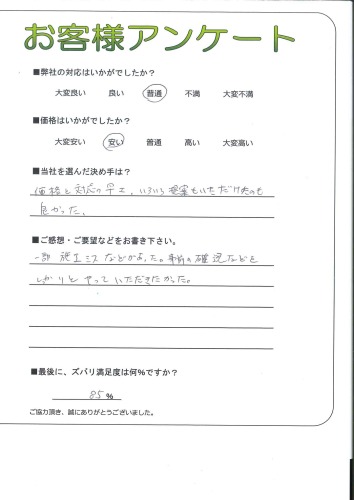 お客様アンケート
■弊社の対応はいかがでしたか?
大変良い 良い 普通 不満 大変不満
■価格はいかがでしたか?
大変安い 安い 普通 高い 大変高い
■当社を選んだ決め手は?
価格と対応の早さ、いろいろ提案もいただけたのも
良かった。
■ご感想・ご要望などをお書き下さい。
一部施工ミスなどがあった。事前の確認などを
しっかりとやっていただきたかった。
■最後に、ズバリ満足度は何%ですか?
85 %
ご協力頂き、誠にありがとうございました。